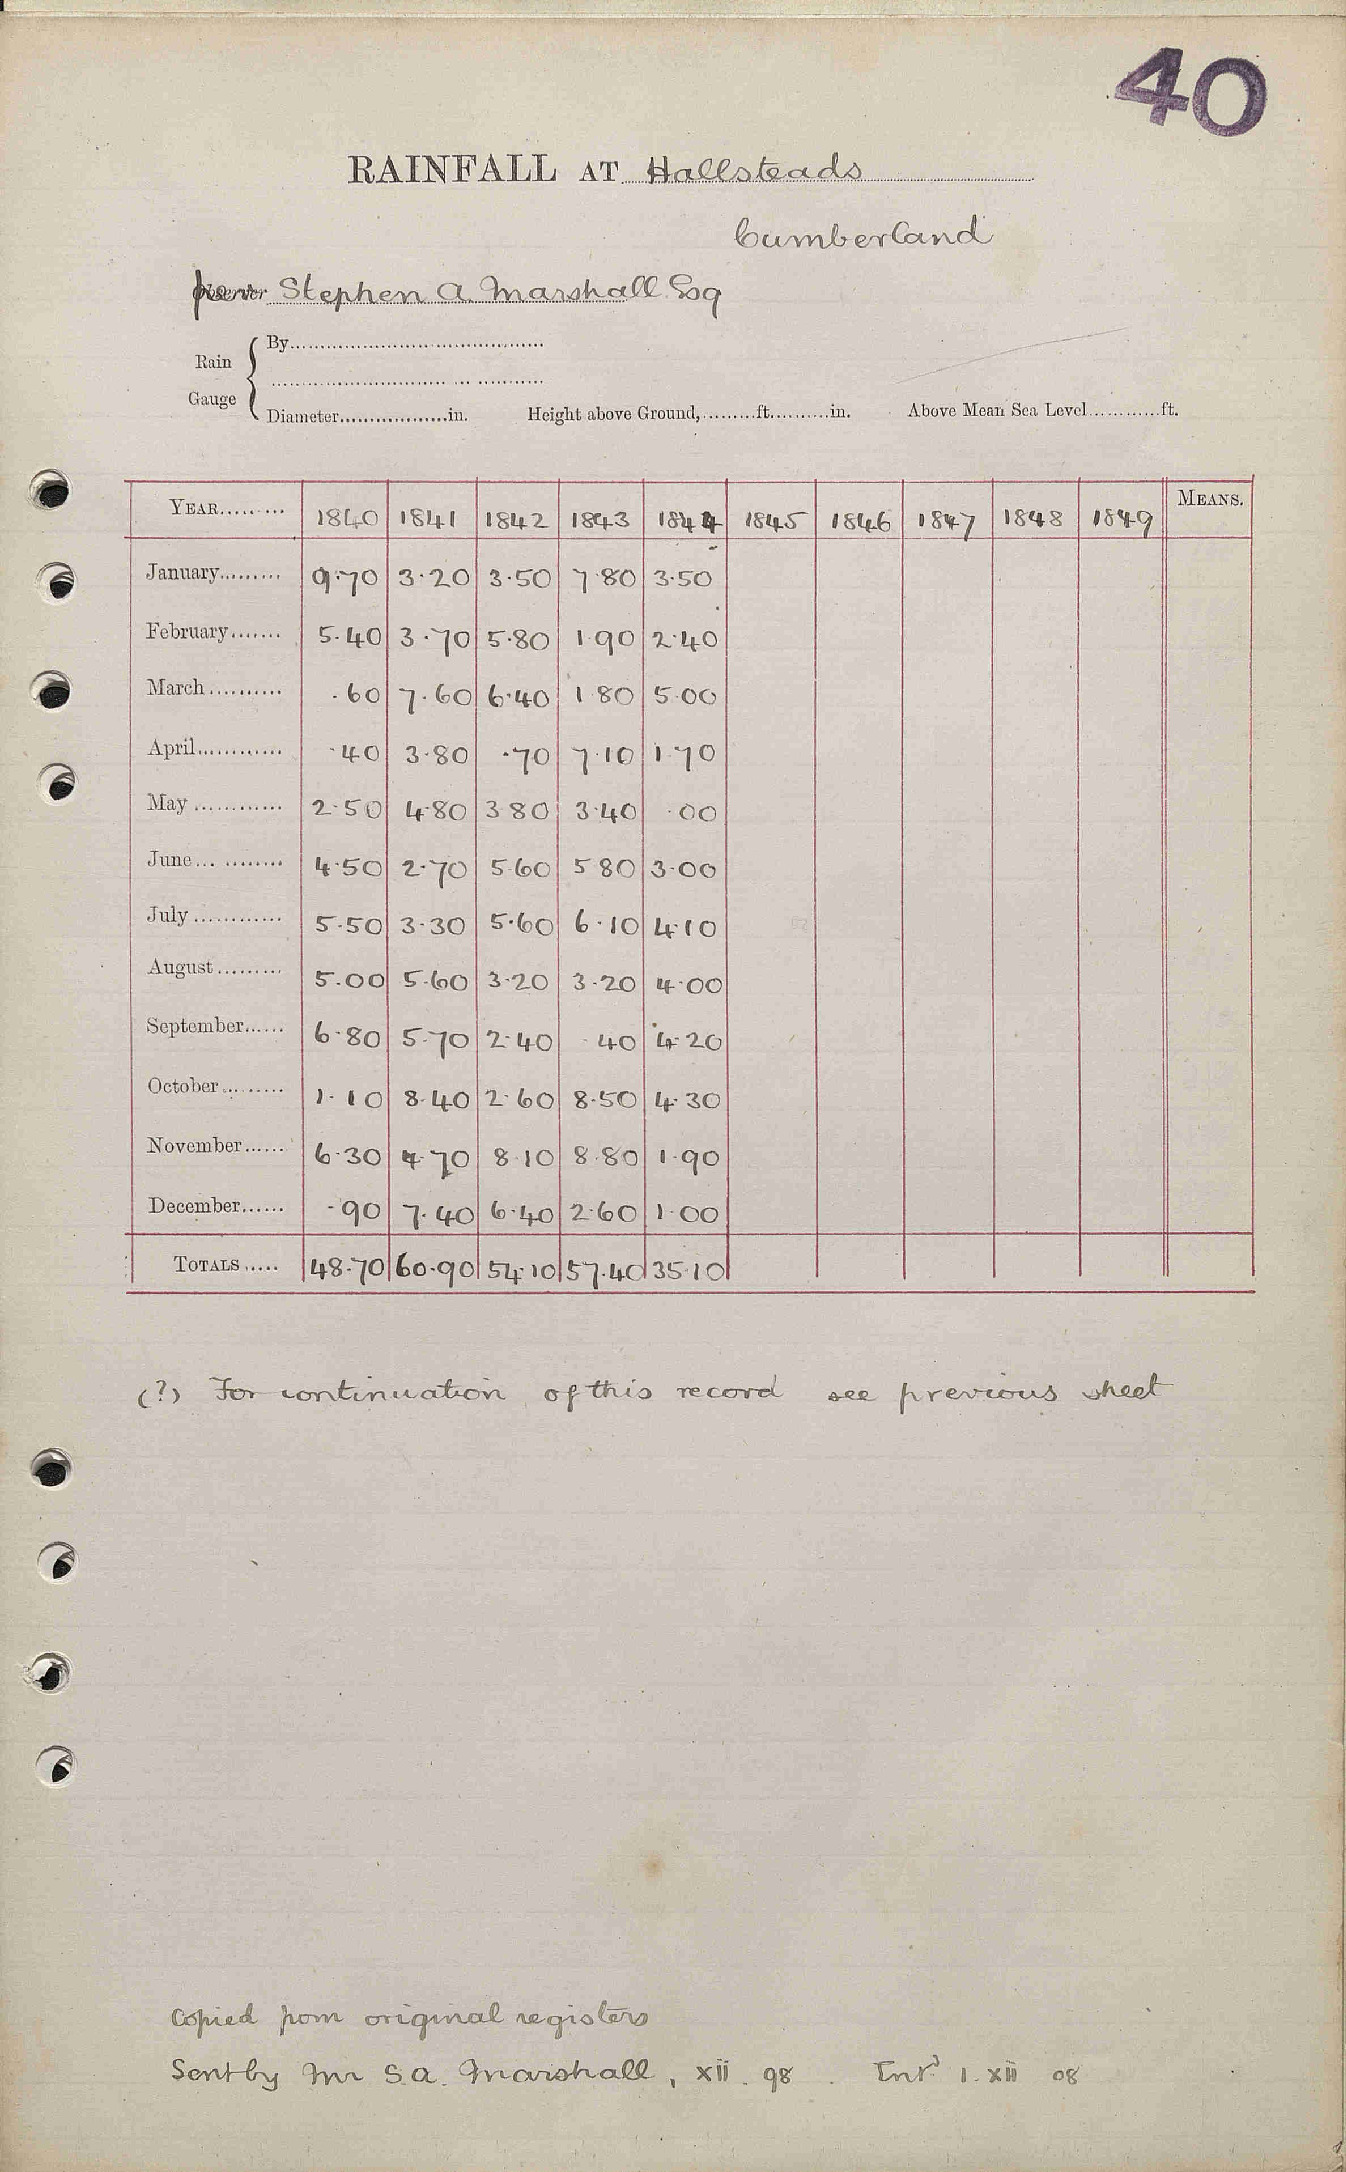 40
RAINFALL AT Hallsteads
Cumberland
from Stephen A. Marshall Esq
Rain Gauge
By
Diameter in. Height above Ground, ft. in. Above Mean Sea Level ft.
YEAR 1840 1841 1842 1843 1844 1845 1846 1847 1848 1849 MEANS.
January 9.70 3.20 3.50 7.80 3.50
February 5.40 3.70 5.80 1.90 2.40
March .60 7.60 6.40 1.80 5.00
April .40 3.80 .70 7.10 1.70
May 2.50 4.80 3.80 3.40 .00
June 4.50 2.70 5.60 5.80 3.00
July 5.50 3.30 5.60 6.10 4.10
August 5.00 5.60 3.20 3.20 4.00
September 6.80 5.70 2.40 .40 4.20
October 1.10 8.40 2.60 8.50 4.30
November 6.30 4.70 8.10 8.80 1.90
December .90 7.40 6.40 2.60 1.00
TOTALS 48.70 60.90 54.10 57.40 35.10
(?) For continuation of this record see previous sheet
Copied from original registers
Sent by Mr S.A. Marshall, xii. 98. Entd 1. xii 08